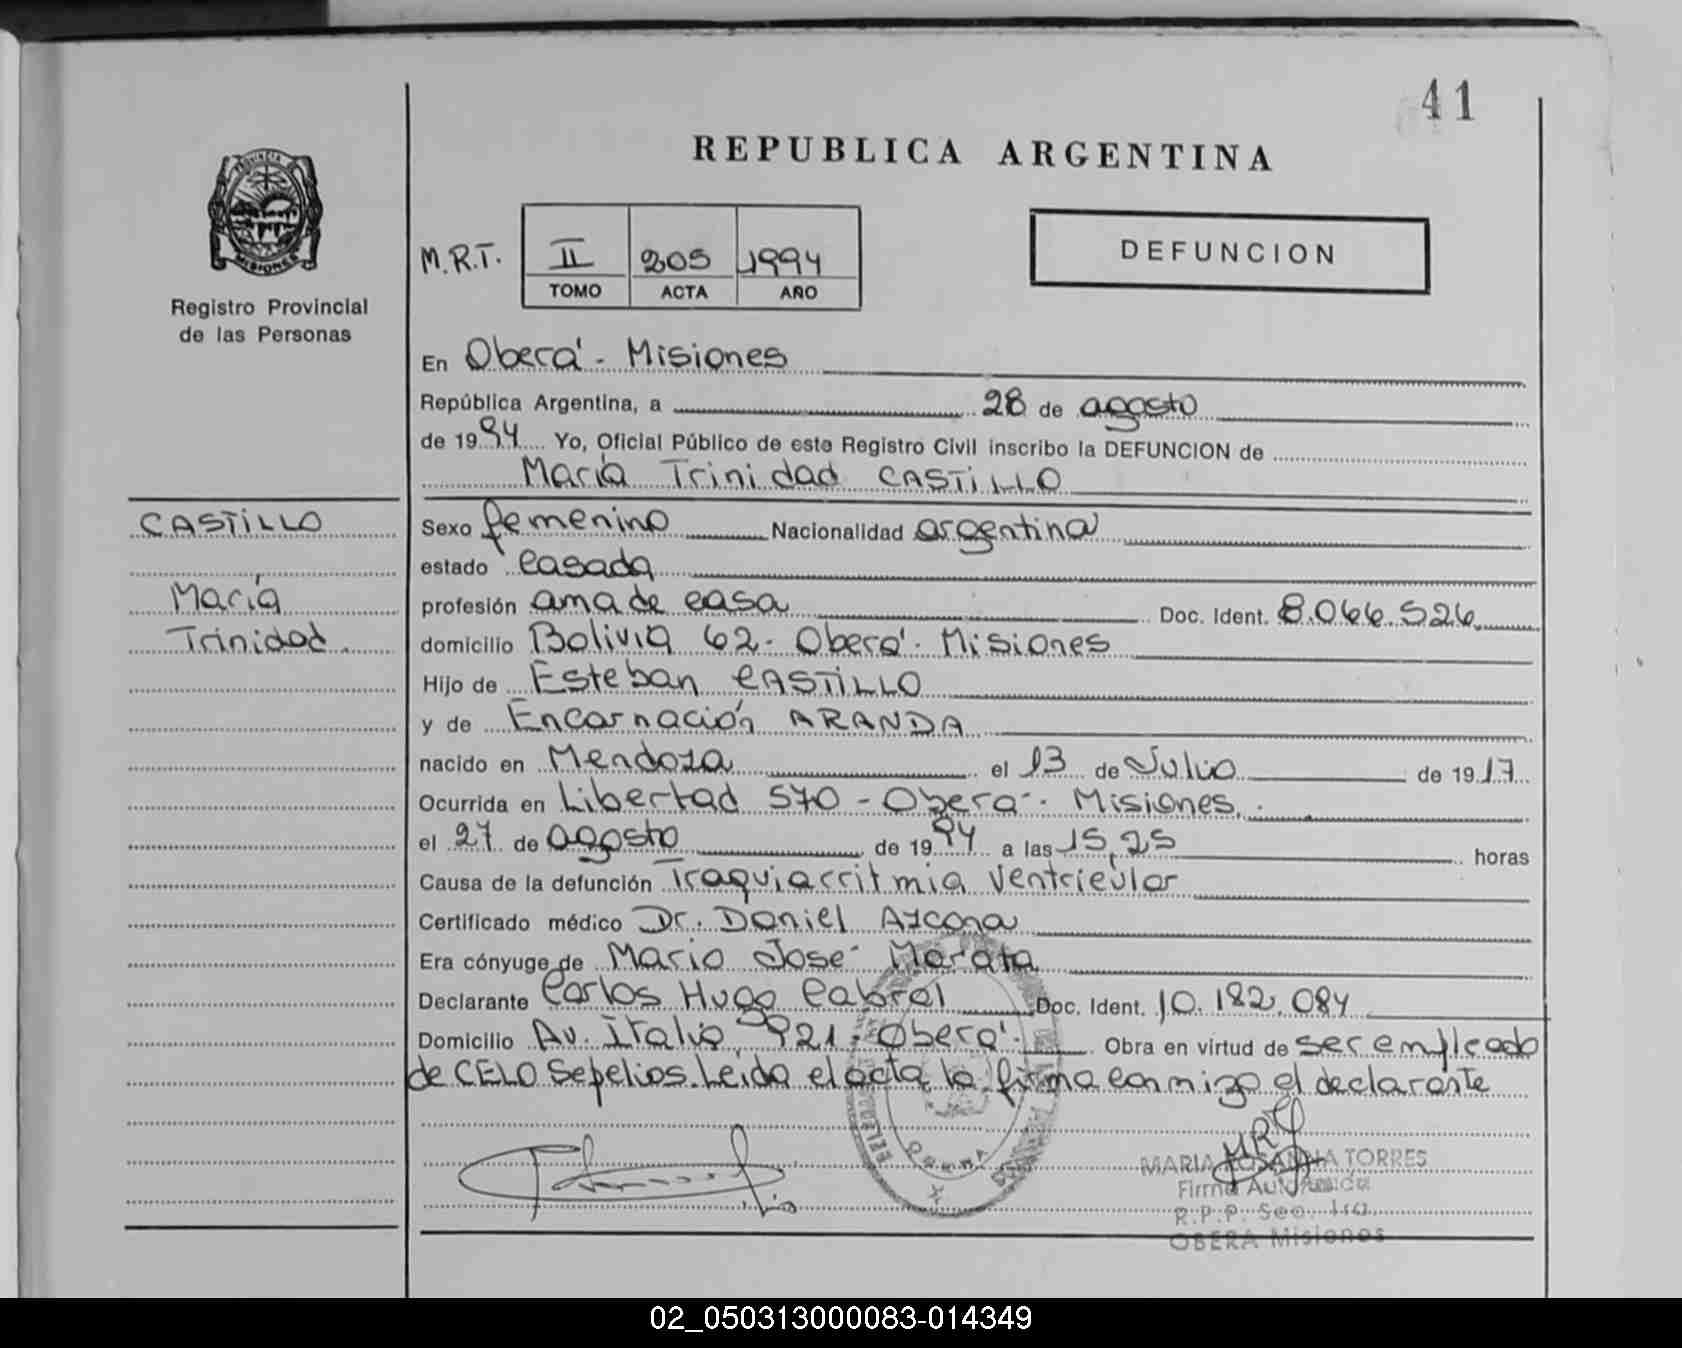 41
REPUBLICA ARGENTINA
PROVINCIA
MISIONES
Registro Provincial
de las Personas
M.R.T. II 205 1994
TOMO ACTA AÑO
DEFUNCION
En Oberá - Misiones
República Argentina, a 28 de agosto
de 1994 Yo, Oficial Público de este Registro Civil inscribo la DEFUNCION de
María Trinidad CASTILLO
CASTILLO
María
Trinidad
Sexo femenino Nacionalidad argentina
estado casada
profesión ama de casa Doc. Ident. 8.066.526
domicilio Bolivia 62 - Oberá - Misiones
Hijo de Esteban CASTILLO
y de Encarnación ARANDA
nacido en Mendoza el 13 de Julio de 1917
Ocurrida en Libertad 570 - Oberá - Misiones.
el 27 de agosto de 1994 a las 15,25 horas
Causa de la defunción Traquiarritmia Ventricular
Certificado médico Dr. Daniel Azcona
Era cónyuge de Mario José Morata
Declarante Carlos Hugo Cabral Doc. Ident. 10.182.084
Domicilio Av. Italia 921 - Oberá - Obra en virtud de ser empleado
de CELO Sepelios. Leida el acta la firma conmigo el declarante
OBERA
MARIA ROSANNA TORRES
Firma Autorizada
R.P.P. Sec. 1ra.
OBERA Misiones
02_050313000083-014349